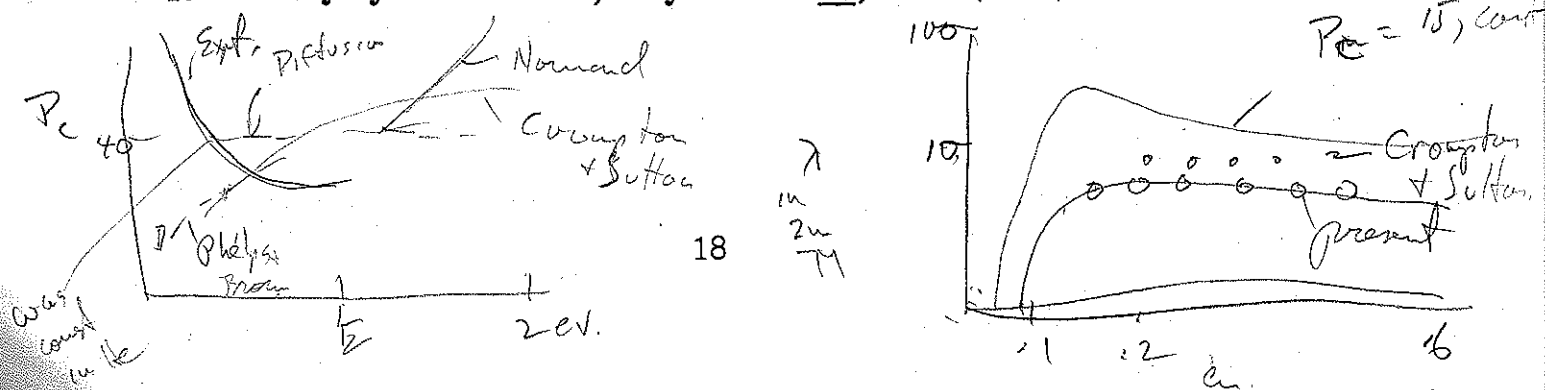 Expt. Diffusion
Normand
Pc
40
Crompton
+ Sutton
Phelps
Brown
was
const
in He
1/2
2 ev.
18
100
Pc = 15, const
10
λ
in
2m
M
Crompton
+ Sutton
present
.1
.2
6